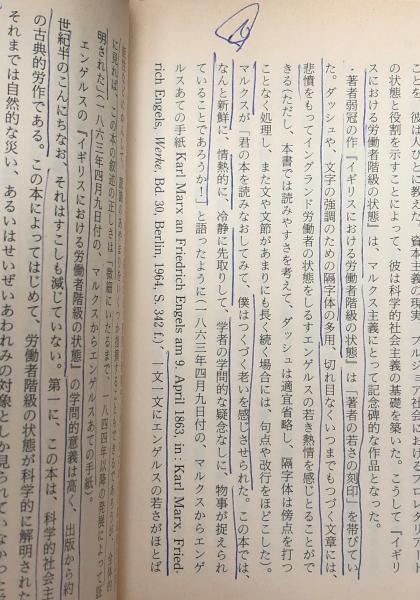 ことを、彼は人びとに教えた。資本主義の現実、ブルジョア社会におけるプロレタリアート
の状態と役割を示すことによって、彼は科学的社会主義の基礎を築いた。こうして『イギリ
スにおける労働者階級の状態』は、マルクス主義にとって記念碑的な作品となった。
著者弱冠の作『イギリスにおける労働者階級の状態』は「著者の若さの刻印」を帯びてい
た。ダッシュや、文字の強調のための隔字体の多用、切れ目なくいつまでもつづく文章には、
悲憤をもってイングランド労働者の状態をしるすエンゲルスの若き熱情を感じとることがで
きる(ただし、本書では読みやすさを考えて、ダッシュは適宜省略し、隔字体は傍点を打つ
ことなく処理し、また文や文節があまりにも長く続く場合には、句点や改行をほどこした)。
マルクスが「君の本を読みなおしてみて、僕はつくづく老いを感じさせられた。この本では、
なんと新鮮に、情熱的に、冷静に先取りして、学者の学問的な疑念なしに、物事が捉えられ
ていることであろうか!」と語ったように(一八六三年四月九日付の、マルクスからエンゲ
ルスあての手紙 Karl Marx an Friedrich Engels am 9. April 1863, in : Karl Marx, Fried-
rich Engels, Werke, Bd. 30, Berlin, 1964, S. 342 f.)、一文一文にエンゲルスの若さがほとば
に見れば、この本の叙述の正しさは「微細にいたるまで、一八四四年以降の発展によって証
明された」(一八六三年四月九日付の、マルクスからエンゲルスあての手紙)。
エンゲルスの『イギリスにおける労働者階級の状態』の学問的意義は高く、出版から約
世紀半のこんにちなお、それはすこしも減じていない。第一に、この本は、科学的社会主
の古典的労作である。この本によってはじめて、労働者階級の状態が科学的に解明された
それまでは自然的な災い、あるいはせいぜいあわれみの対象としか見られていなかった